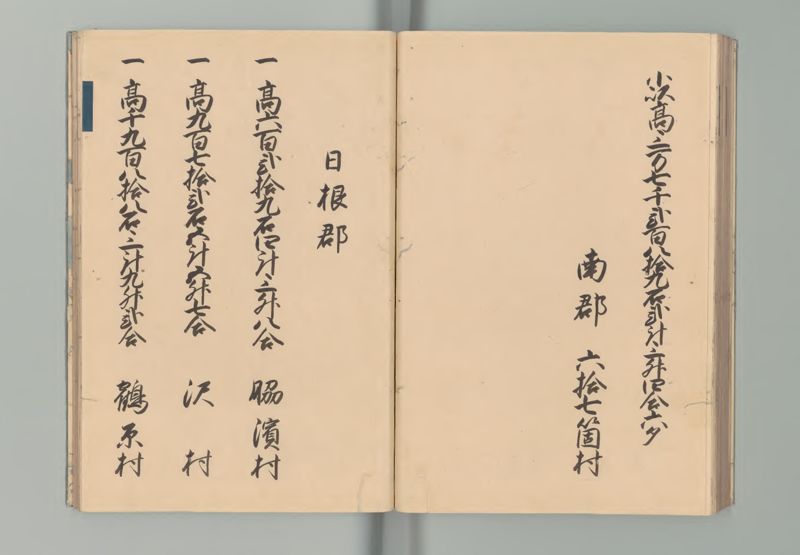 小以高三万七千弐百八拾九石弐斗三升四合六夕
南郡 六拾七箇村
日根郡
一 高六百弐拾九石四斗三升八合 脇濱村
一 高九百七拾弐石五斗五升七合 沢村
一 高千九百八拾八石三斗九升弐合 鶴原村